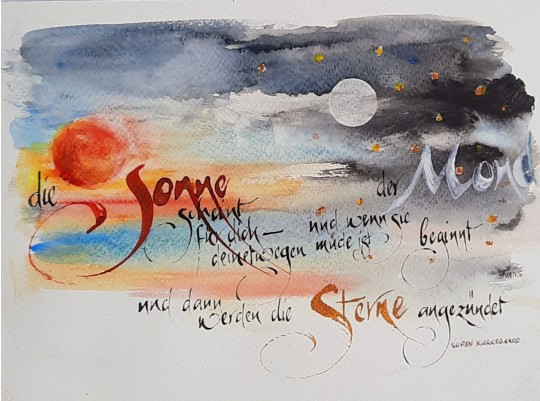 die Sonne
scheint
für dich –
deinetwegen
und wenn sie
müde ist
beginnt
der Mond
und dann
werden die Sterne angezündet
SØREN KIERKEGAARD